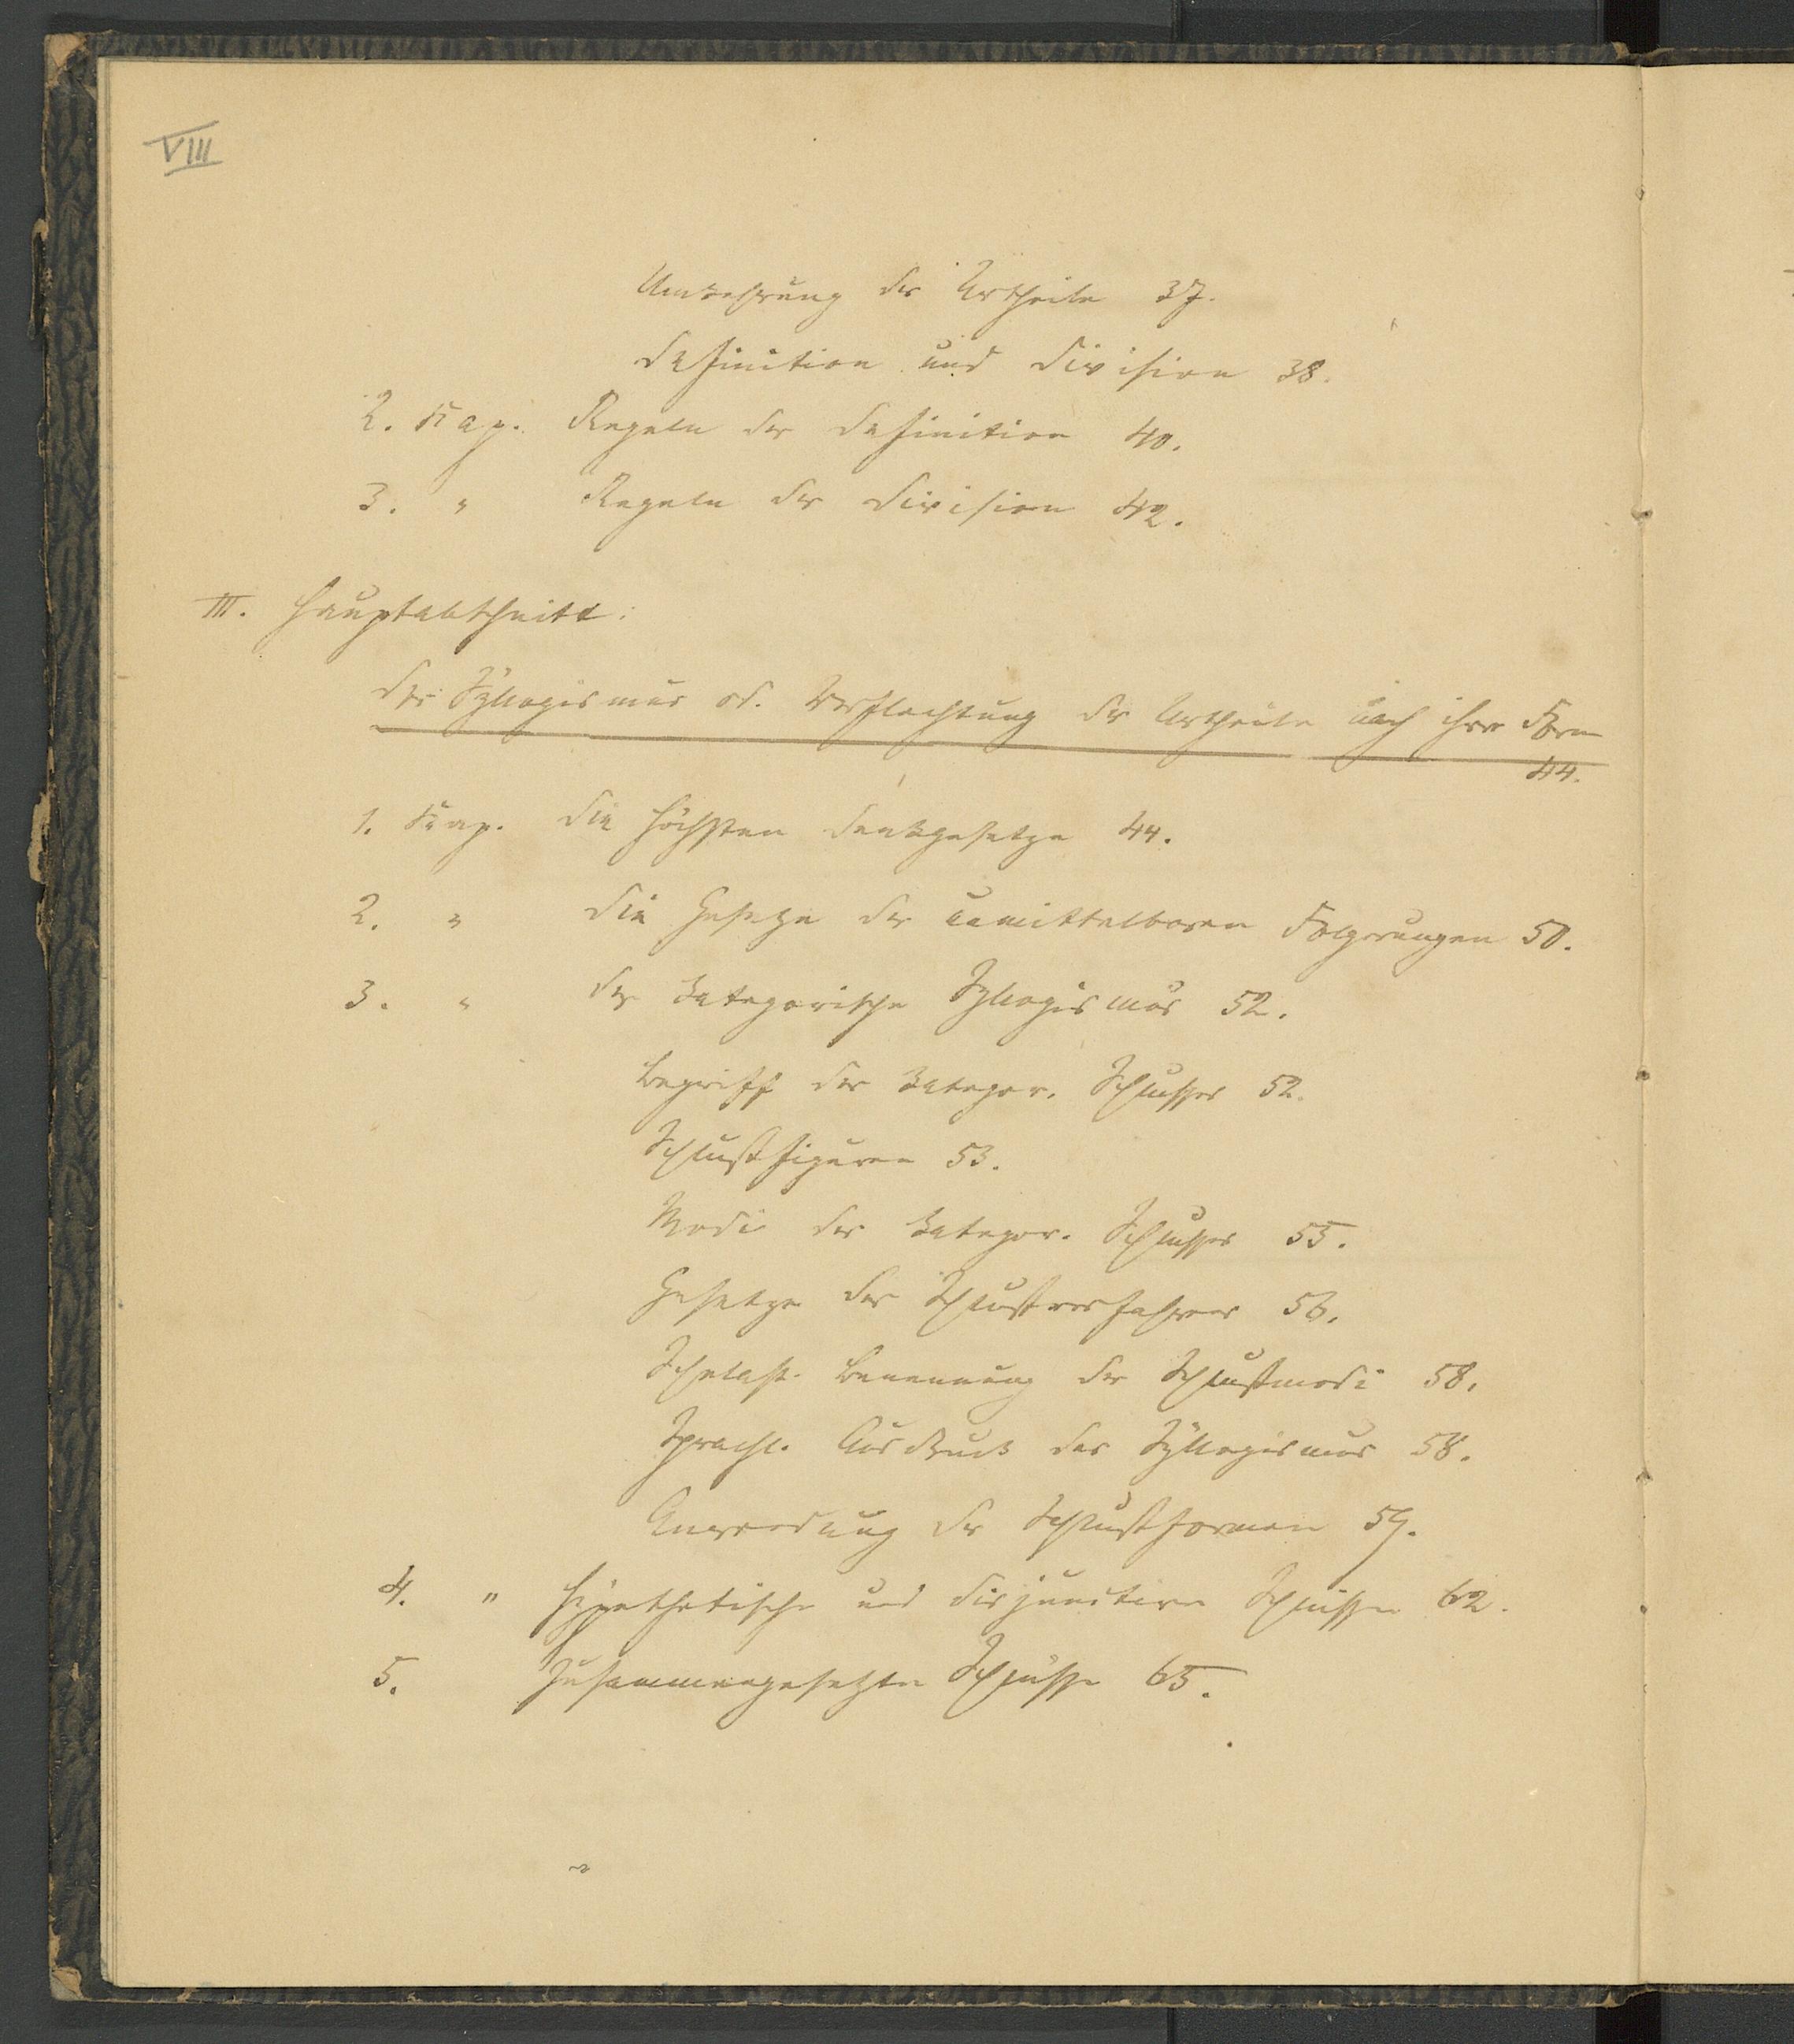 VIII
Umkehrung der Urtheile 37.
Definition und Division 38.
2. Kap. Regeln der Definition 40.
3. " Regeln der Division 42.
III. Hauptabschnitt:
Der Syllogismus od. Verflechtung der Urtheile nach ihrer Form
44.
1. Kap. Die höchsten Denkgesetze 44.
2. " Die Gesetze der unmittelbaren Folgerungen 50.
3. " Der kategorische Syllogismus 52.
Begriff des kategor. Schlusses 52.
Schlußfiguren 53.
Modi des kategor. Schlusses 55.
Gesetze des Schlußverfahrens 56.
Scholast. Benennung der Schlußmodi 58.
Sprachl. Ausdruck des Syllogismus 58.
Anwendung der Schlußformen 59.
4. " Hypothetische und disjunctive Schlüsse 62.
5. Zusammengesetzte Schlüsse 65.